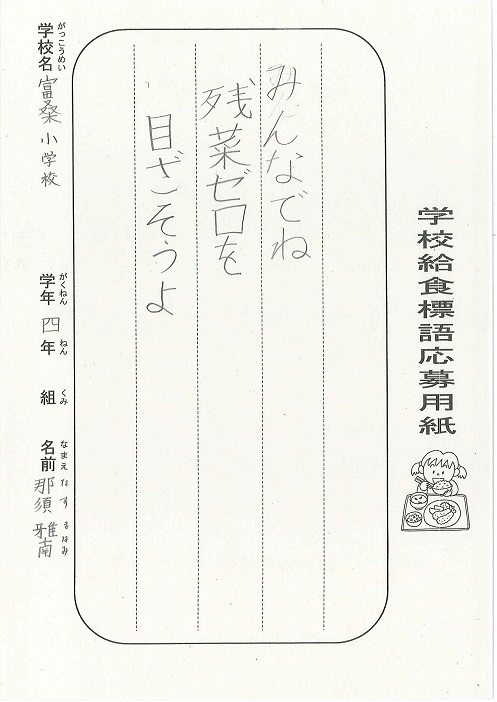 学校給食標語応募用紙
みんなでね
残菜ゼロを
目ざそうよ
学校名 富桑小学校 学年 四年 組 名前 那須 雅南
がっこうめい がくねん ねん くみ なまえ なす